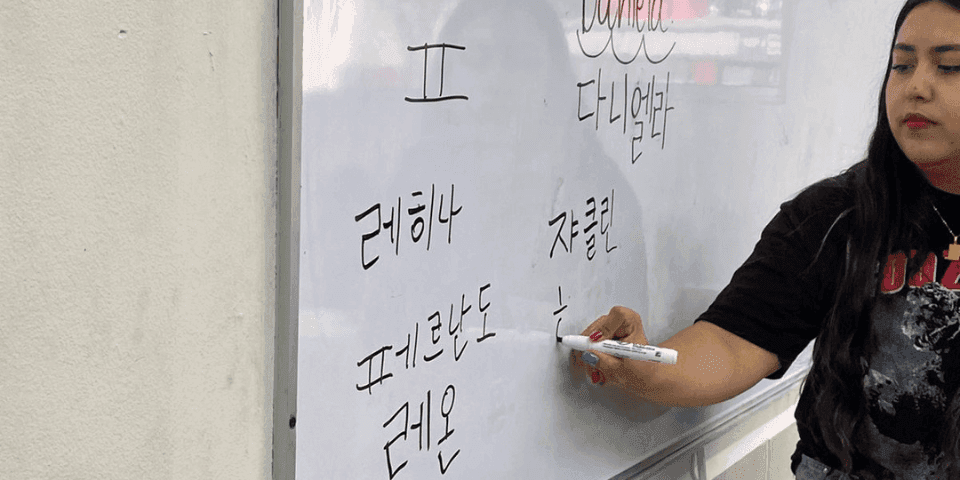 Daniela
ㅍ
다니엘라
레히나
쟈클린
페르난도
레온